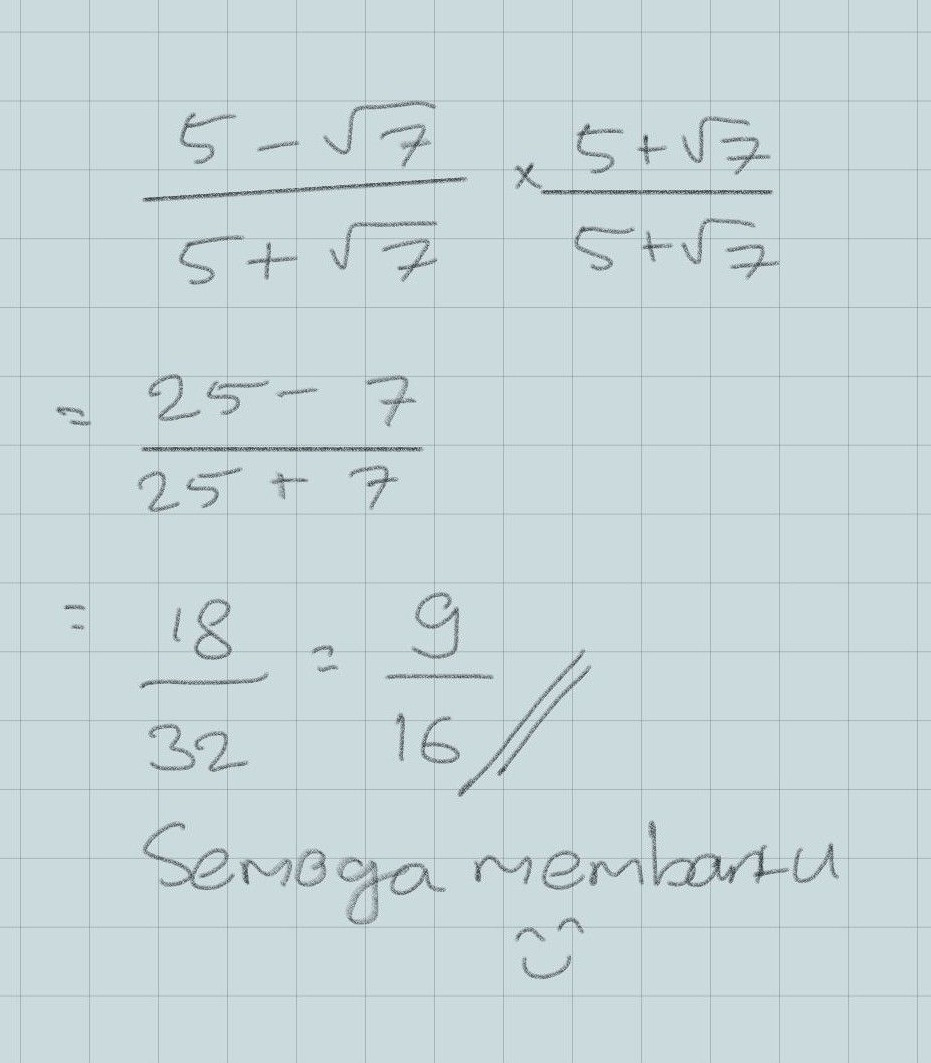 5 - √7 × 5 + √7
5 + √7   5 + √7
= 25 - 7
25 + 7
= 18 = 9
32   16 //
Semoga membantu